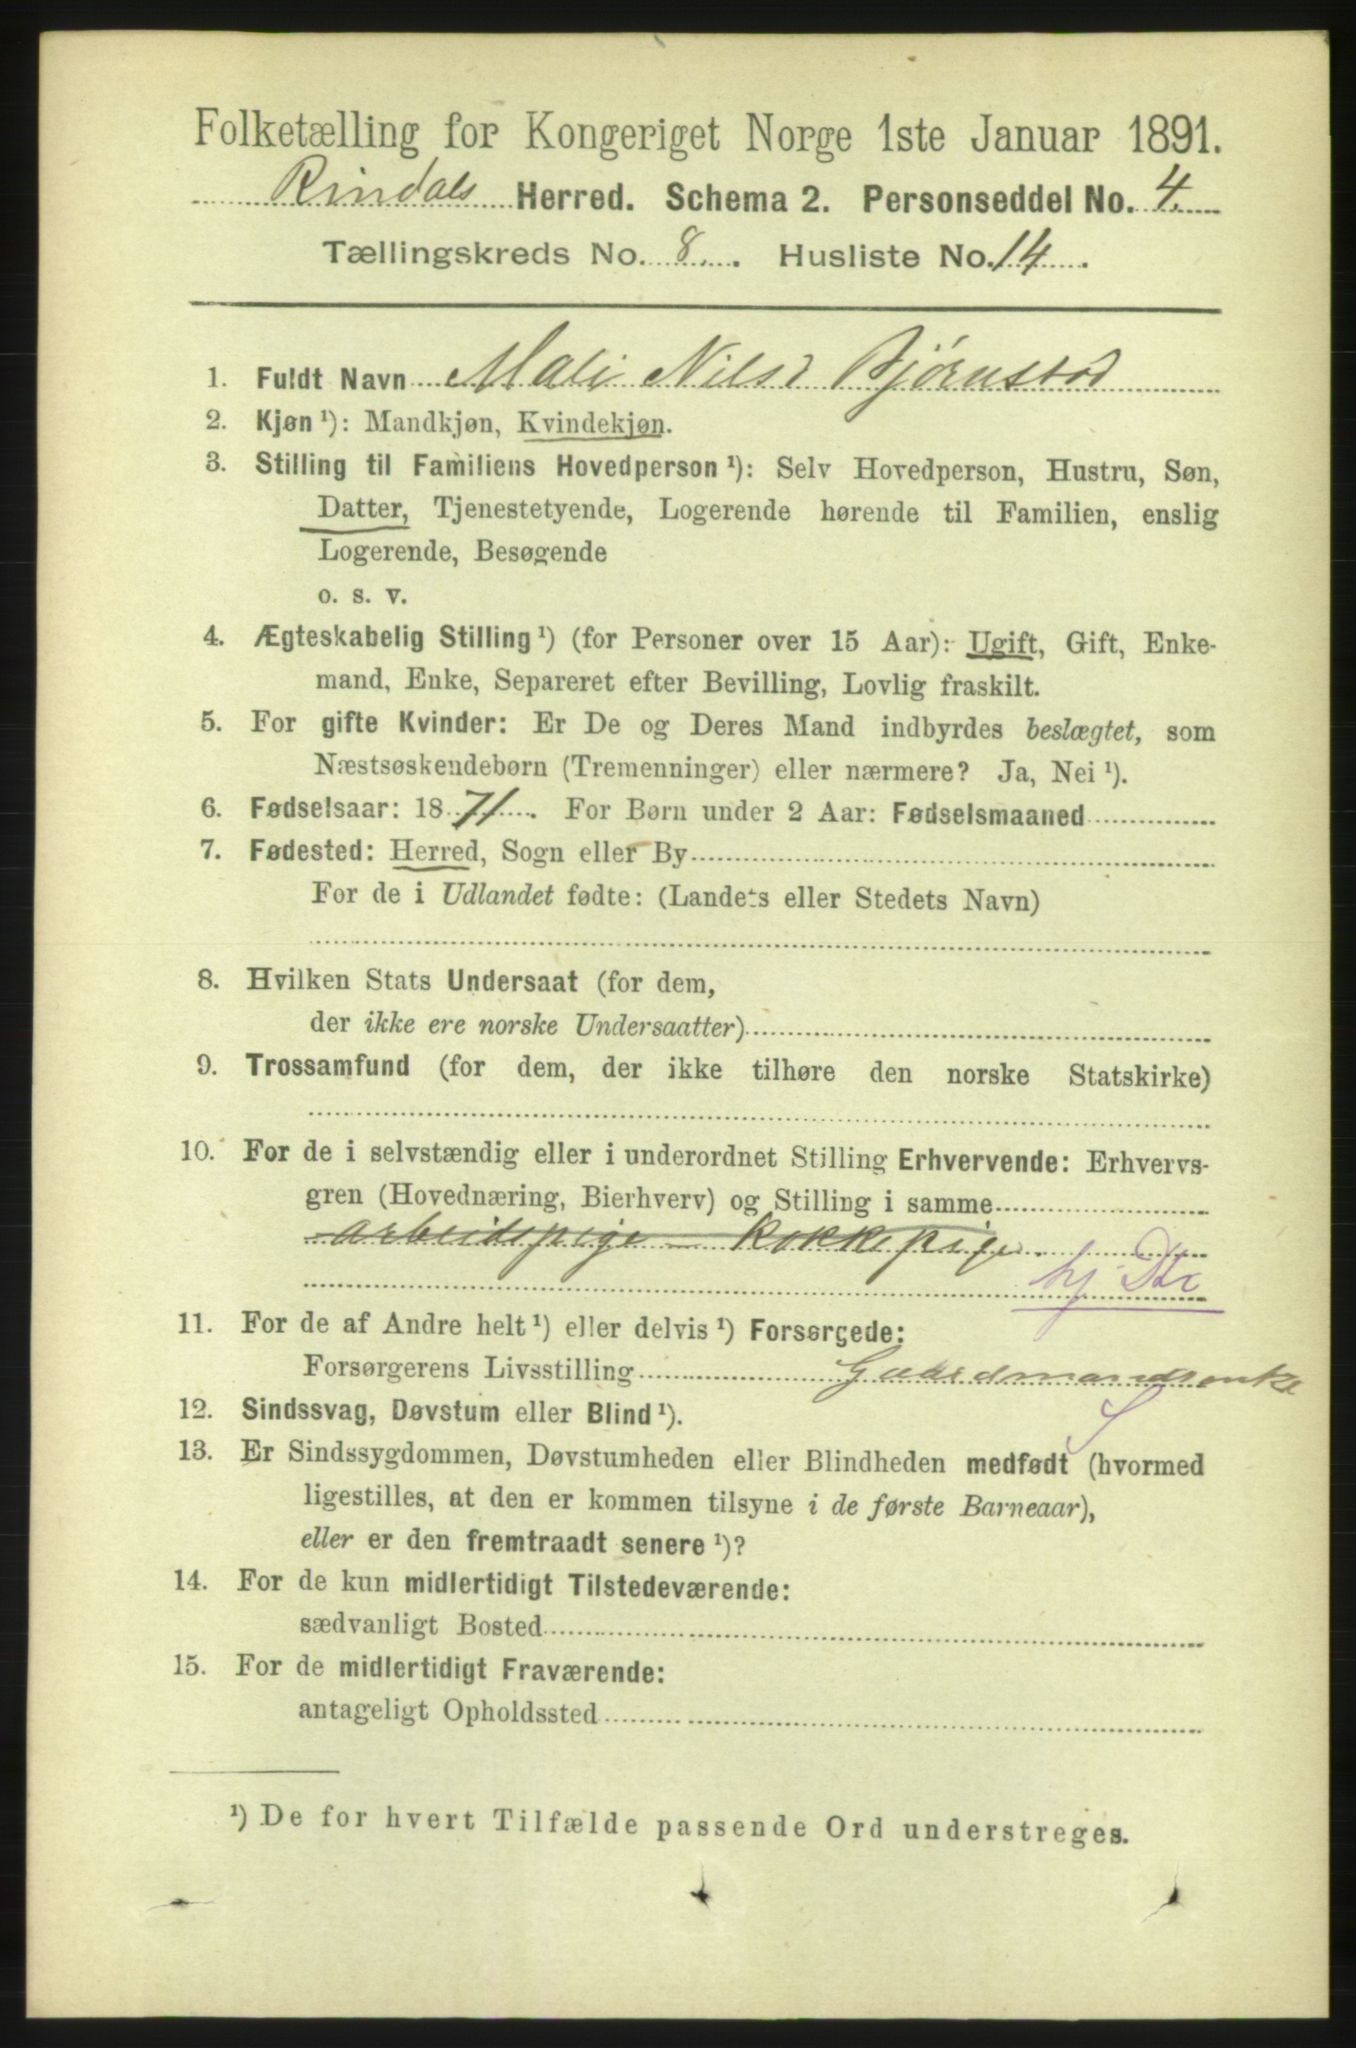 Folketælling for Kongeriget Norge 1ste Januar 1891.
Rindals Herred. Schema 2. Personseddel No. 4.
Tællingskreds No. 8. Husliste No. 14.
1. Fuldt Navn Mali Nilsd Bjørnstad
2. Kjøn ¹): Mandkjøn, Kvindekjøn.
3. Stilling til Familiens Hovedperson ¹): Selv Hovedperson, Hustru, Søn,
Datter, Tjenestetyende, Logerende hørende til Familien, enslig
Logerende, Besøgende
o. s. v.
4. Ægteskabelig Stilling ¹) (for Personer over 15 Aar): Ugift, Gift, Enke-
mand, Enke, Separeret efter Bevilling, Lovlig fraskilt.
5. For gifte Kvinder: Er De og Deres Mand indbyrdes beslægtet, som
Næstsøskendebørn (Tremenninger) eller nærmere? Ja, Nei ¹).
6. Fødselsaar: 1871. For Børn under 2 Aar: Fødselsmaaned
7. Fødested: Herred, Sogn eller By
For de i Udlandet fødte: (Landets eller Stedets Navn)
8. Hvilken Stats Undersaat (for dem,
der ikke ere norske Undersaatter)
9. Trossamfund (for dem, der ikke tilhøre den norske Statskirke)
10. For de i selvstændig eller i underordnet Stilling Erhvervende: Erhvervs-
gren (Hovednæring, Bierhverv) og Stilling i samme
arbeidspige – kokkepige.
hj. Dtr
11. For de af Andre helt ¹) eller delvis ¹) Forsørgede:
Forsørgerens Livsstilling Gaardmandsenke
S
12. Sindssvag, Døvstum eller Blind ¹).
13. Er Sindssygdommen, Døvstumheden eller Blindheden medfødt (hvormed
ligestilles, at den er kommen tilsyne i de første Barneaar),
eller er den fremtraadt senere ¹)?
14. For de kun midlertidigt Tilstedeværende:
sædvanligt Bosted
15. For de midlertidigt Fraværende:
antageligt Opholdssted
¹) De for hvert Tilfælde passende Ord understreges.